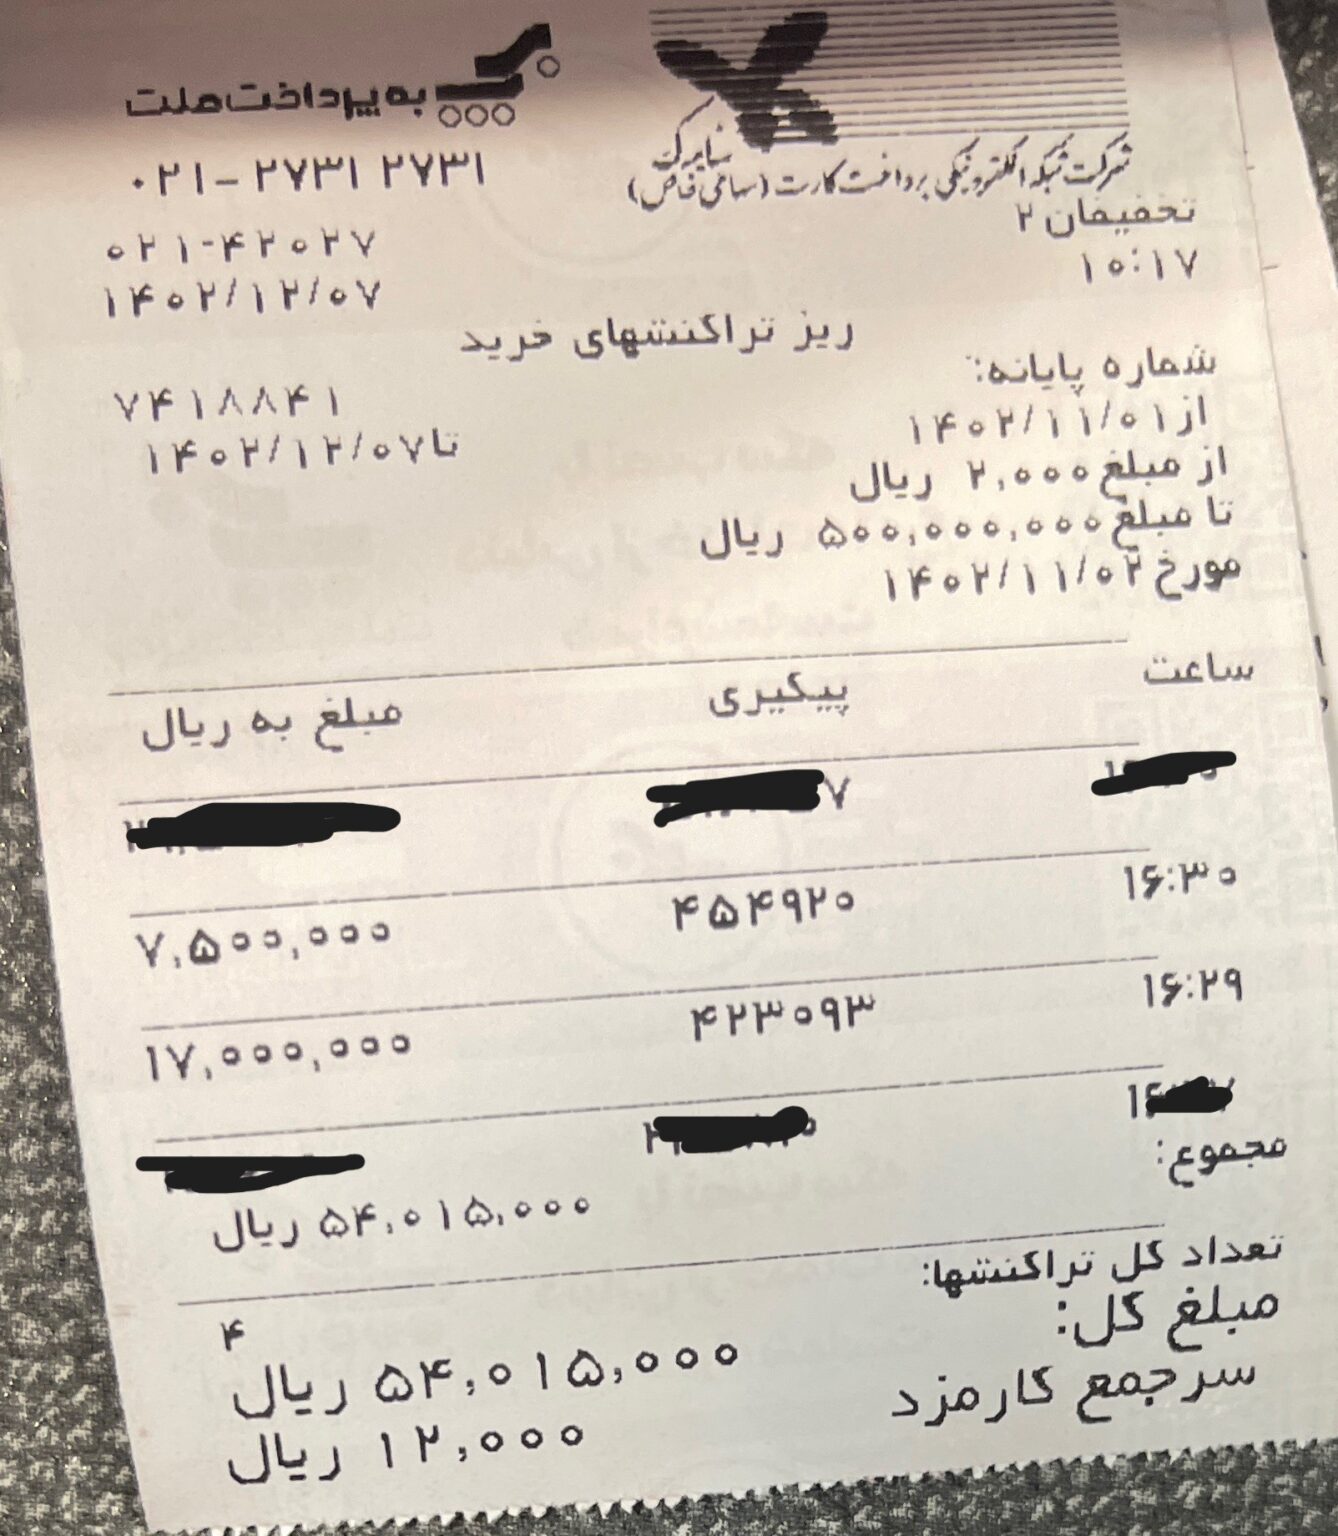 به پرداخت ملت
شاپرک
شرکت شبکه الکترونیکی پرداخت کارت (سهامی خاص)
۰۲۱-۲۷۳۱ ۲۷۳۱
تخفیفان ۲ ۰۲۱-۴۲۰۲۷
۱۰:۱۷ ۱۴۰۲/۱۲/۰۷
ریز تراکنشهای خرید
شماره پایانه: ۷۴۱۸۸۴۱
از ۱۴۰۲/۱۱/۰۱ تا ۱۴۰۲/۱۲/۰۷
از مبلغ ۲,۰۰۰ ریال
تا مبلغ ۵۰۰,۰۰۰,۰۰۰ ریال
مورخ ۱۴۰۲/۱۱/۰۲
ساعت پیگیری مبلغ به ریال
۱۶:۳۰ ۴۵۴۹۲۰ ۷,۵۰۰,۰۰۰
۱۶:۲۹ ۴۲۳۰۹۳ ۱۷,۰۰۰,۰۰۰
مجموع: ۵۴,۰۱۵,۰۰۰ ریال
تعداد کل تراکنشها: ۴
مبلغ کل: ۵۴,۰۱۵,۰۰۰ ریال
سرجمع کارمزد ۱۲,۰۰۰ ریال